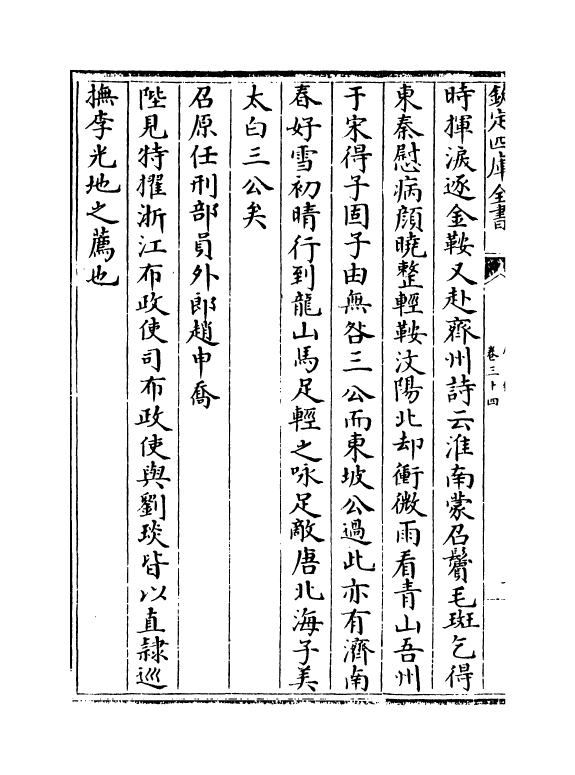 欽定四庫全書
卷三十四
時揮淚逐金鞍又赴齊州詩云淮南蒙召鬢毛斑乞得
東秦慰病顔曉整輕鞍汶陽北却衝微雨看青山吾州
于宋得子固子由無咎三公而東坡公過此亦有濟南
春好雪初晴行到龍山馬足輕之咏足敵唐北海子美
太白三公矣
召原任刑部員外郎趙申喬
陛見特擢浙江布政使司布政使與劉琰皆以直隷巡
撫李光地之薦也